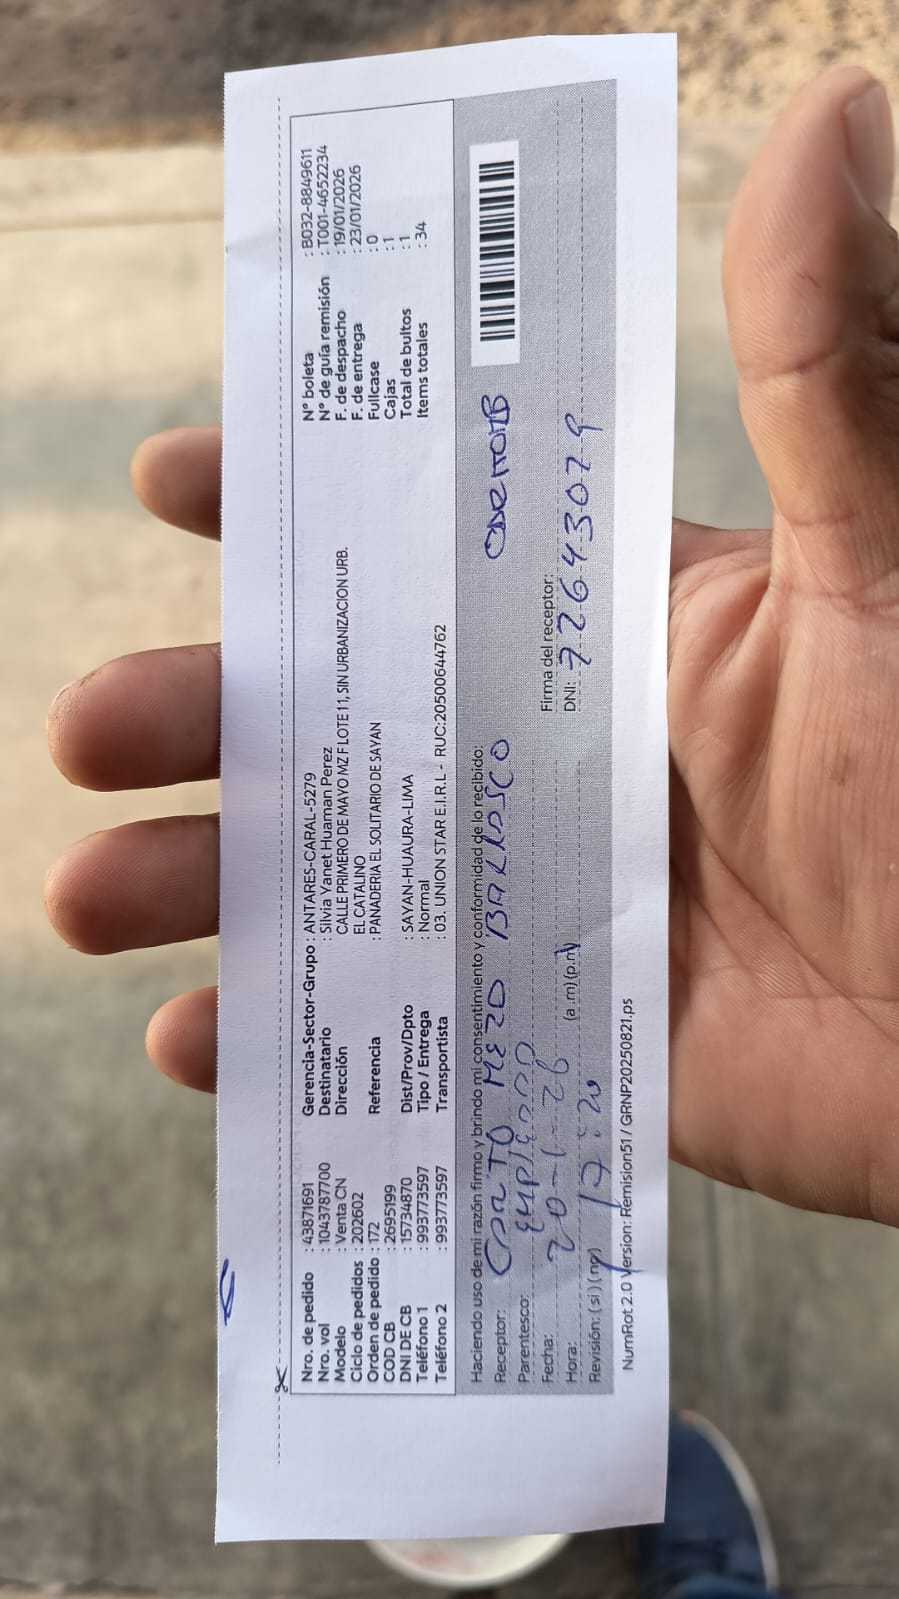 Nro. de pedido : 43871691
Nro. vol : 1043787700
Modelo : Venta CN
Ciclo de pedidos : 202602
Orden de pedido : 172
COD CB : 2695199
DNI DE CB : 15734870
Teléfono 1 : 993773597
Teléfono 2 : 993773597
Gerencia-Sector-Grupo : ANTARES-CARAL-5279
Destinatario : Silvia Yanet Huaman Perez
Dirección CALLE PRIMERO DE MAYO MZ F LOTE 11, SIN URBANIZACION URB.
EL CATALINO
Referencia : PANADERIA EL SOLITARIO DE SAYAN
Dist/Prov/Dpto : SAYAN-HUAURA-LIMA
Tipo / Entrega : Normal
Transportista : 03. UNION STAR E.I.R.L - RUC:20500644762
N° boleta : B032-8849611
N° de guía remisión : T001-4652234
F. de despacho : 19/01/2026
F. de entrega : 23/01/2026
Fullcase : 0
Cajas : 1
Total de bultos : 1
Items totales : 34
Haciendo uso de mi razón firmo y brindo mi consentimiento y conformidad de lo recibido:
Receptor:
Parentesco:
Fecha: 20-1-26
Hora: 17:20 (a .m) (p.m)
Revisión: ( si ) ( no )
Firma del receptor:
DNI: 72643079
NumRot 2.0 Version: Remision51 / GRNP20250821.ps